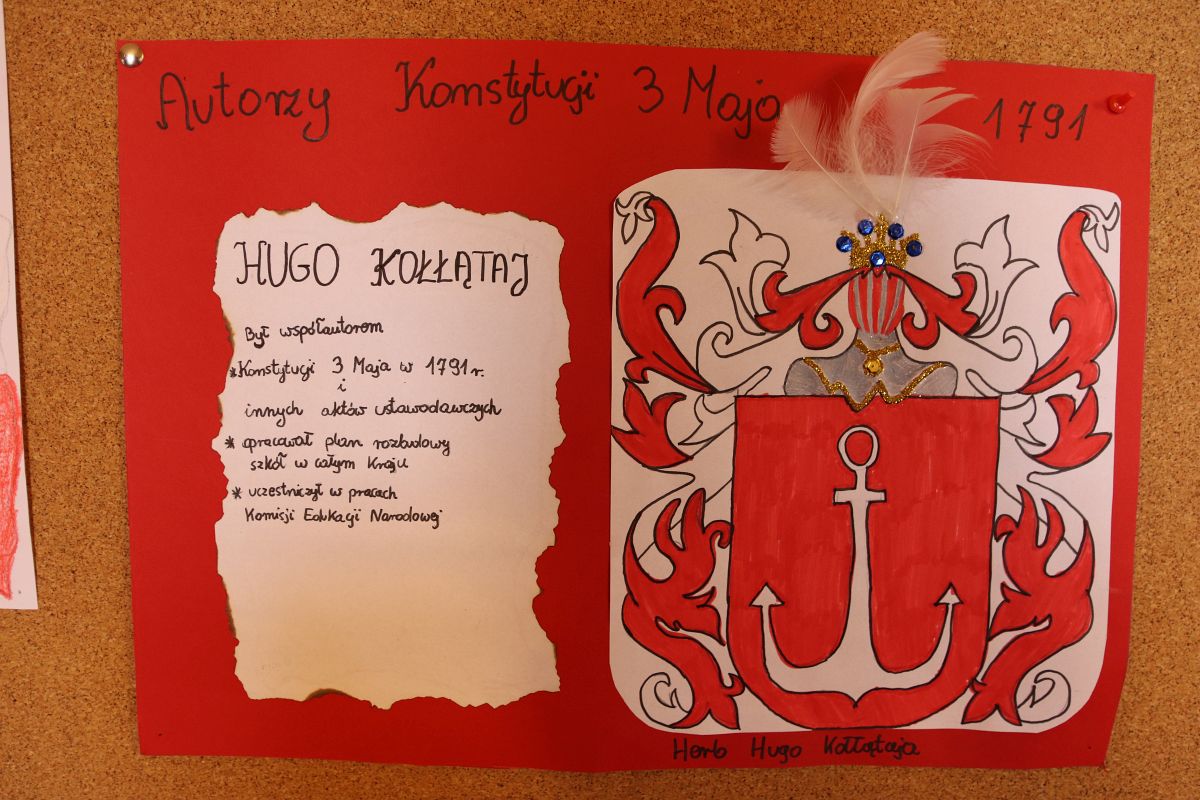 Autorzy Konstytucji 3 Maja 1791
HUGO KOŁŁĄTAJ
Był współautorem
*Konstytucji 3 Maja w 1791 r.
i
innych aktów ustawodawczych
* opracował plan rozbudowy
szkół w całym Kraju
* uczestniczył w pracach
Komisji Edukacji Narodowej
Herb Hugo Kołłątaja